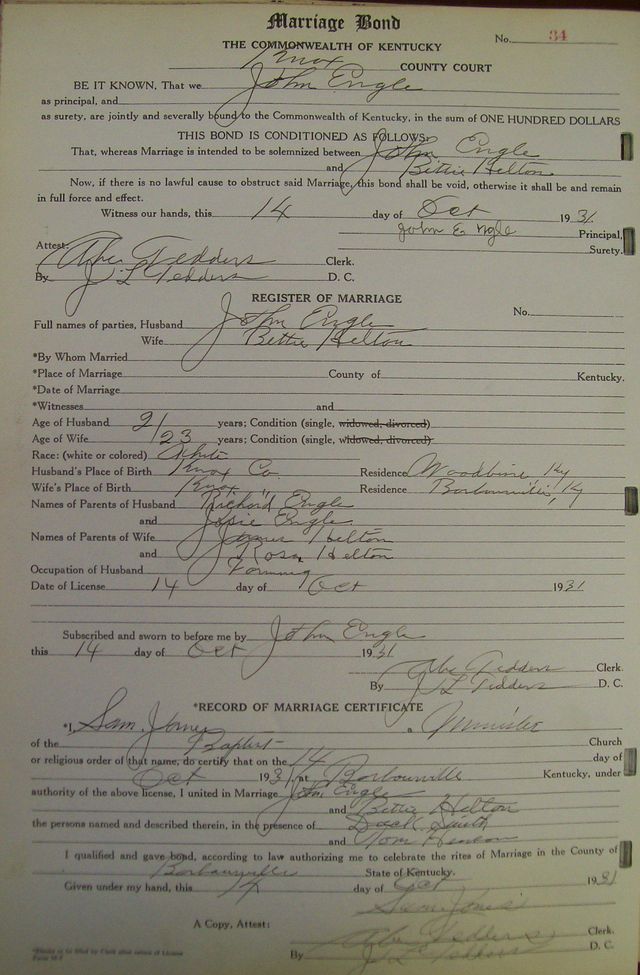 Marriage Bond
No. 34
THE COMMONWEALTH OF KENTUCKY
Knox COUNTY COURT
BE IT KNOWN, That we John Engle
as principal, and
as surety, are jointly and severally bound to the Commonwealth of Kentucky, in the sum of ONE HUNDRED DOLLARS
THIS BOND IS CONDITIONED AS FOLLOWS:
That, whereas Marriage is intended to be solemnized between John Engle
and Bettie Helton
Now, if there is no lawful cause to obstruct said Marriage, this bond shall be void, otherwise it shall be and remain
in full force and effect.
Witness our hands, this 14 day of Oct 1931
John Engle Principal,
Surety.
Attest:
Abe Tedders Clerk.
By J L Tedders D. C.
REGISTER OF MARRIAGE
No.
Full names of parties, Husband John Engle
Wife Bettie Helton
*By Whom Married
*Place of Marriage County of Kentucky.
*Date of Marriage
*Witnesses and
Age of Husband 21 years; Condition (single, widowed, divorced)
Age of Wife 23 years; Condition (single, widowed, divorced)
Race: (white or colored) White
Husband's Place of Birth Knox Co Residence Woodbine Ky
Wife's Place of Birth Knox " Residence Barbourville, Ky
Names of Parents of Husband Richard Engle
and Josie Engle
Names of Parents of Wife James Helton
and Rosa Helton
Occupation of Husband Farming
Date of License 14 day of Oct 1931
Subscribed and sworn to before me by John Engle
this 14 day of Oct 1931
Abe Tedders Clerk.
By J L Tedders D. C.
*RECORD OF MARRIAGE CERTIFICATE
*I, Sam Jones a Minister
of the Baptist Church
or religious order of that name, do certify that on the 14 day of
Oct 1931 at Barbourville Kentucky, under
authority of the above license, I united in Marriage John Engle
and Bettie Helton
the persons named and described therein, in the presence of Smith
and Tom
I qualified and gave bond, according to law authorizing me to celebrate the rites of Marriage in the County of
Barbourville State of Kentucky.
Given under my hand, this 14 day of Oct 1931
Sam Jones
A Copy, Attest:
Abe Tedders Clerk.
By J L Tedders D. C.
*Blanks to be filled by Clerk after return of License